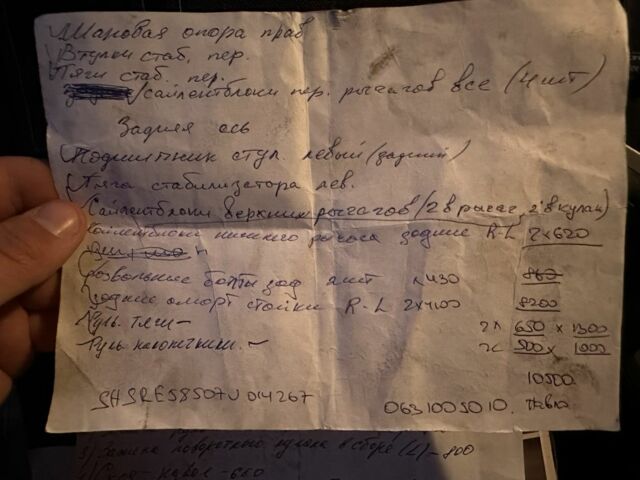 Шаровая опора прав
Втулки стаб. пер.
Тяги стаб. пер.
сайлентблоки пер. рычагов все (4шт)
Задняя ось
Подшипник ступ. левый (задний)
Тяга стабилизатора лев.
Сайлентблоки верхних рычагов (2 в рычаг, 2 в кулак)
Сайлентблоки нижнего рычага задние R-L 2x620
розвольные болты зад 2x430 860
задние аморт стойки R-L 2x4100 8200
Руль. тяги - 2x 650 x 1300
Руль наконечники. - 2x 500 x 1000
10500
SHSRE58507U014267
0631005010. Павло
3) Замена поворотного кулака в сборе (L) - 800